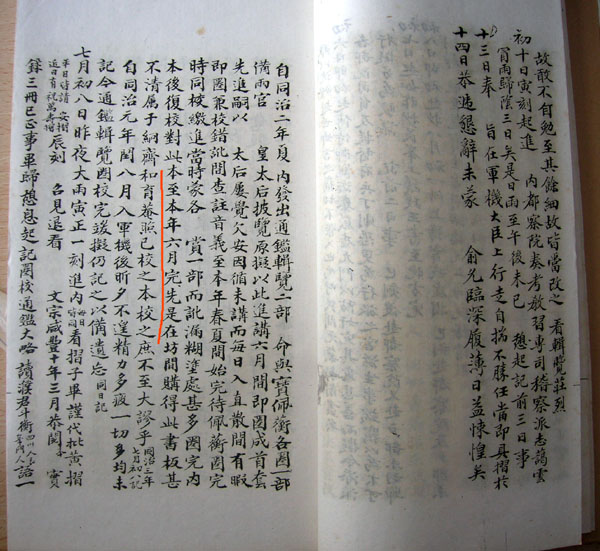 故敢不自勉至其餘細故皆當改之 看輯覽莊烈
初十日寅刻起進 內都察院奏考教習專司稽察派志藹雲
冒雨歸陰三日矣是日雨至午後未已 憩起記前三日事
十三日奉 旨在軍機大臣上行走自揣不勝任當即具摺於
十四日恭遞懇辭未蒙 俞允臨深履薄日益悚惶矣
自同治二年夏 內發出通鑑輯覽二部 命與寶佩衡各圈一部
備兩宮 皇太后披覽原擬以此進講六月間即圈成首套
先進嗣以 太后屢覺欠安因循未講而每日入直散間有暇
即圈兼校錯訛間查註音義至本年春夏間始完待佩蘅圈完
時同校繳進當時蒙各 賞一部而訛漏糊塗處甚多圈完內
本後復校對此本至本年六月完先是在坊間購得此書板甚
不清屬子納齋和育菴照已校之本校之庶不至大謬乎 同治三年七月初八記
自同治元年閏八月入軍機後昕夕不遑精力多疲一切多均未
記今通鑑輯覽圈校完竣擬仍記之以備遺忘 同日記
七月初八日昨夜大雨寅正一刻進內 看摺子畢謹代批黃摺
辰刻 召見退看 文宗咸豐十年三月恭閱 實
錄三冊已正事畢歸憩息起記閱校通鑑大略 請濮君斗衡 診一